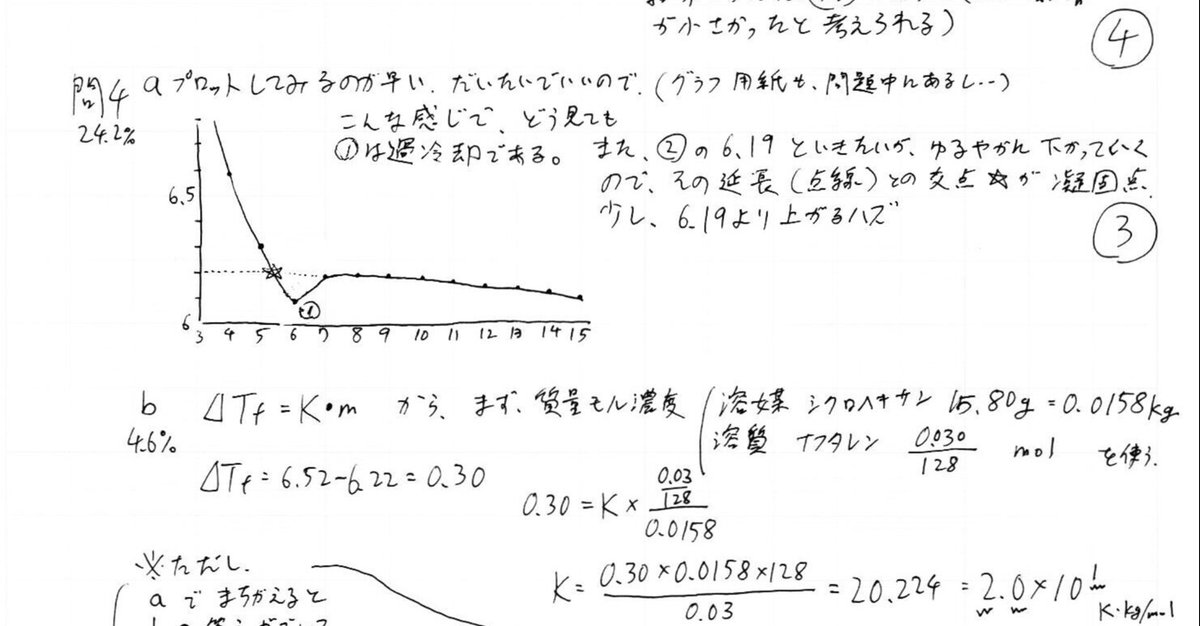 が小さかったと考えられる)
④
問4 a プロットしてみるのが早い、だいたいでいいので、(グラフ用紙も、問題中にあるし…)
24.2%
こんな感じで、どう見ても
①は過冷却である。
また、②の6.19といきたいが、ゆるやかに下がっていく
ので、その延長(点線)との交点☆が凝固点、
少し、6.19より上がるハズ
③
6.5
6
①
3 4 5 6 7 8 9 10 11 12 13 14 15
b ΔTf = K・m から、まず、質量モル濃度
46%
溶媒 シクロヘキサン 15.80g = 0.0158kg
溶質 ナフタレン 0.030/128 mol を使う.
ΔTf = 6.52-6.22 = 0.30
0.30 = K × (0.03/128)/0.0158
K = 0.30×0.0158×128/0.03 = 20.224 = 2.0×10¹
K・kg/mol
※ただし、
a でまちがえると